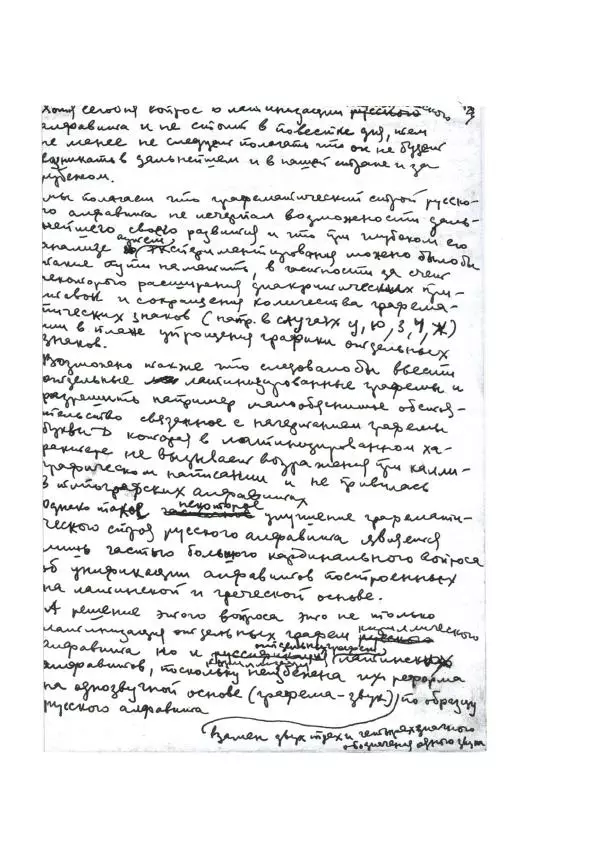 Хотя сегодня вопрос о латинизации русского
алфавита и не стоит в повестке дня, тем
не менее не следует полагать что он не будет
возникать в дальнейшем и в нашей стране и за
рубежом.
мы полагаем что графематический строй русско-
го алфавита не исчерпал возможности даль-
нейшего своего развития и что при глубоком его
анализе путем экспериментирования можно было бы
такие пути наметить, в частности за счет
некоторого расширения диакритических при-
ставок и сокращения количества графема-
тических знаков (напр. в случаях у, ю, з, ч, ж)
или в плане упрощения графики отдельных
знаков.
Возможно также что следовало бы ввести
отдельные латинизированные графемы и
разрешить например малообяснимые обстоя-
тельство связанное с начертанием графемы
буквы D которая в латинизированном ха-
рактере не вызывает возражения при калли-
графическом написании и не привилась
в типографских алфавитах
Однако такое некоторое улучшение графемати-
ческого строя русского алфавита является
лишь частью большого кардинального вопроса
об унификации алфавитов построенных
на латинской и греческой основе.
А решение этого вопроса это не только
латинизация отдельных графем кириллического
алфавита но и русификация отдельных графем латинских
алфавитов, поскольку неизбежна их реформа
на однозвучной основе (графема-звук) по образцу
русского алфавита
взамен двух трех и четырехзначного
обозначения одного звука